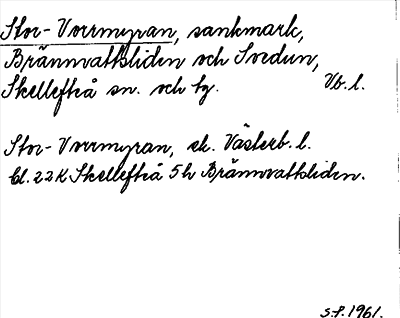 Stor-Vorrmyran, sankmark,
Brännvattsliden och Svedun,
Skellefteå sn. och tg. Vb. l.
Stor-Vorrmyran, ek. Västerb. l.
bl. 22K Skellefteå 5h Brännvattsliden.
s.f. 1961.